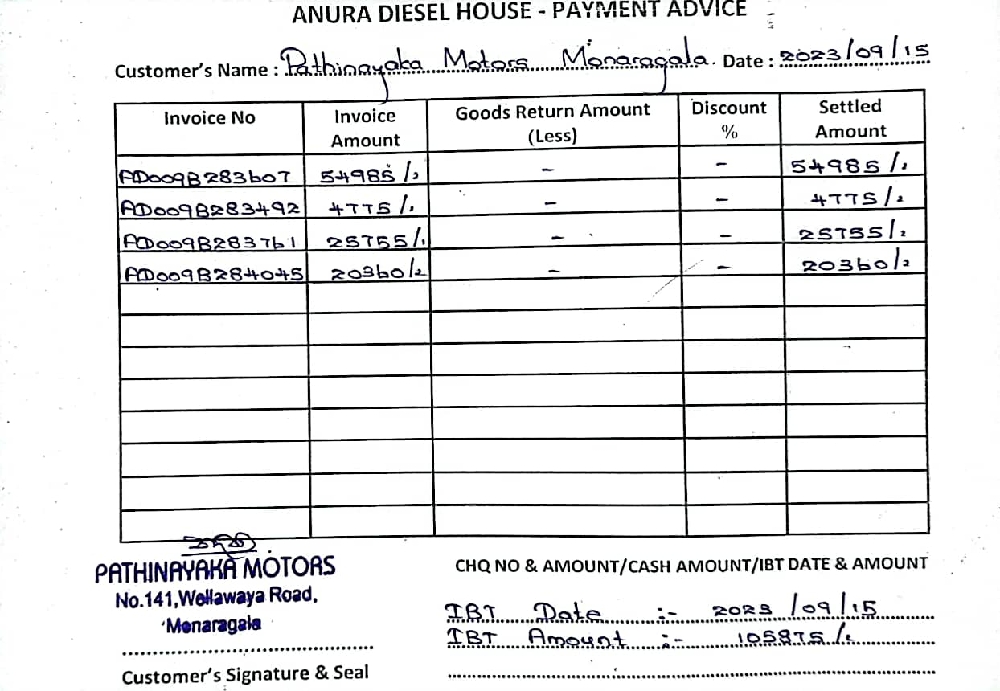 ANURA DIESEL HOUSE - PAYMENT ADVICE
Customer's Name : Pathinayaka Motors Monaragala. Date : 2023/09/15
Invoice No Invoice Amount Goods Return Amount (Less) Discount % Settled Amount
AD009B283607 54985/. - - 54985/.
AD009B283492 4775/. - - 4775/.
AD009B283761 25755/. - - 25755/.
AD009B284045 20360/. - - 20360/.
PATHINAYAKA MOTORS
No.141,Wellawaya Road,
Monaragala
Customer's Signature & Seal
CHQ NO & AMOUNT/CASH AMOUNT/IBT DATE & AMOUNT
IBT Date :- 2023/09/15
IBT Amount :- 105875/.